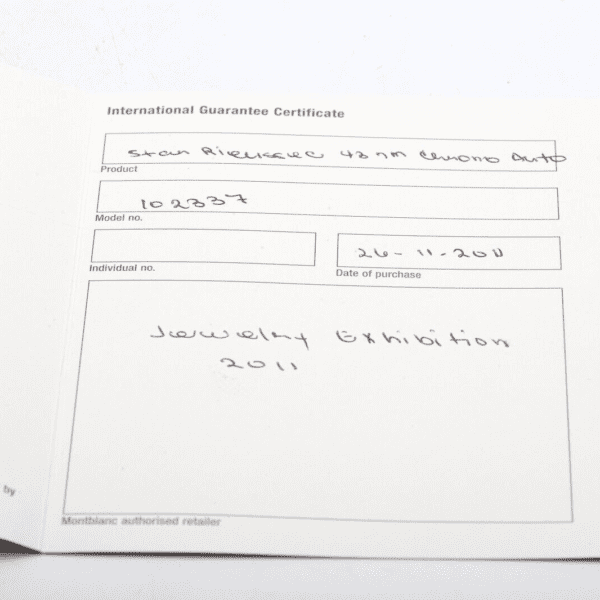 International Guarantee Certificate
Star Rieussec 43 mm Chrono Auto
Product
102337
Model no.
Individual no.
26-11-2011
Date of purchase
Jewelry Exhibition
2011
by
Montblanc authorised retailer